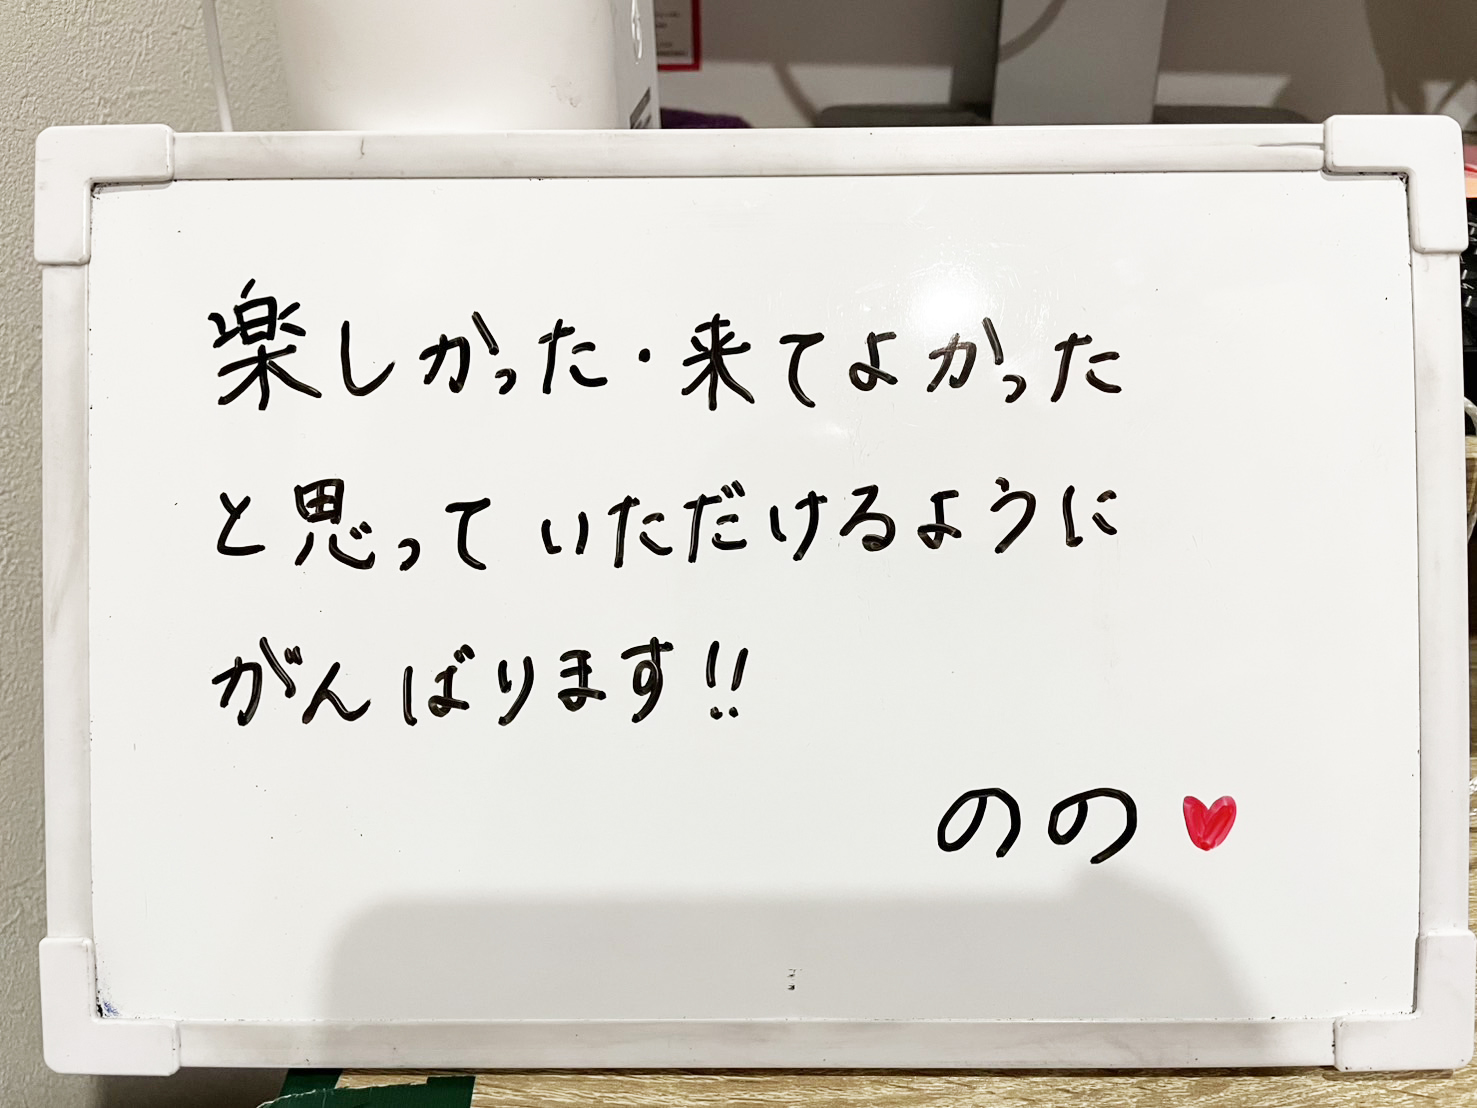 楽しかった・来てよかった
と思っていただけるように
がんばります!!
のの♥